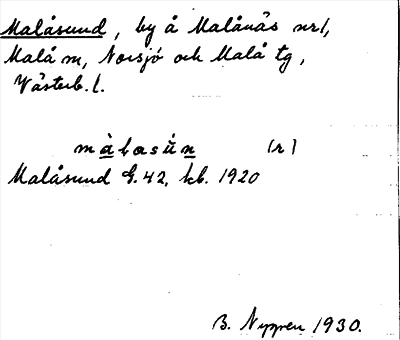 Malåsund, by å Malånäs nr 1,
Malå sn, Norsjö och Malå tg,
Västerb. l.
(r)
Malåsund G. 42, kb. 1920
B. Nygren 1930.